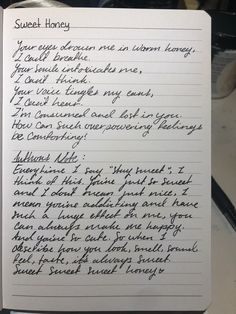 Sweet Honey
Your eyes drown me in warm honey,
I can't breathe.
Your smile intoxicates me,
I can't think.
Your voice tingles my ears,
I can't hear.
I'm consumed and lost in you.
How can such overpowering feelings
be comforting!
Author's Note:
Everytime I say "stay sweet", I
think of this. You're just so sweet
and I don't mean just nice. I
mean you're addicting and have
such a huge effect on me, you
can always make me happy.
And you're so cute. So when I
describe how you look, smell, sound,
feel, taste, it's always sweet.
Sweet Sweet Sweet honey♡